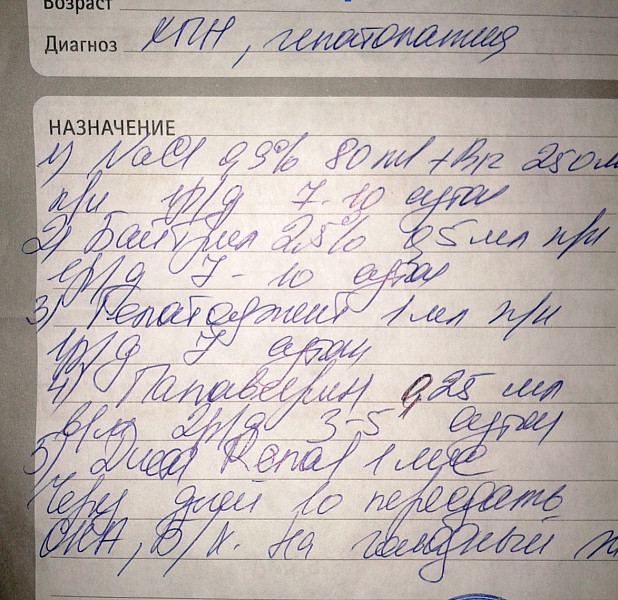 Возраст
Диагноз ХПН, гепатопатия
НАЗНАЧЕНИЕ
1) NaCl 0,9% 80 ml + B12 250
п/к 1р/д 7-10 суток
2) Байтрил 2,5% 0,5 мл п/к
1р/д 7-10 суток
3) Гепатоджект 1 мл п/к
1р/д 7 суток
4) Папаверин 0,25 мл
в/м 2р/д 3-5 суток
5) Диета Renal 1 мес
Через дней 10 пересдать
ОКА, Б/Х. На голодный ж